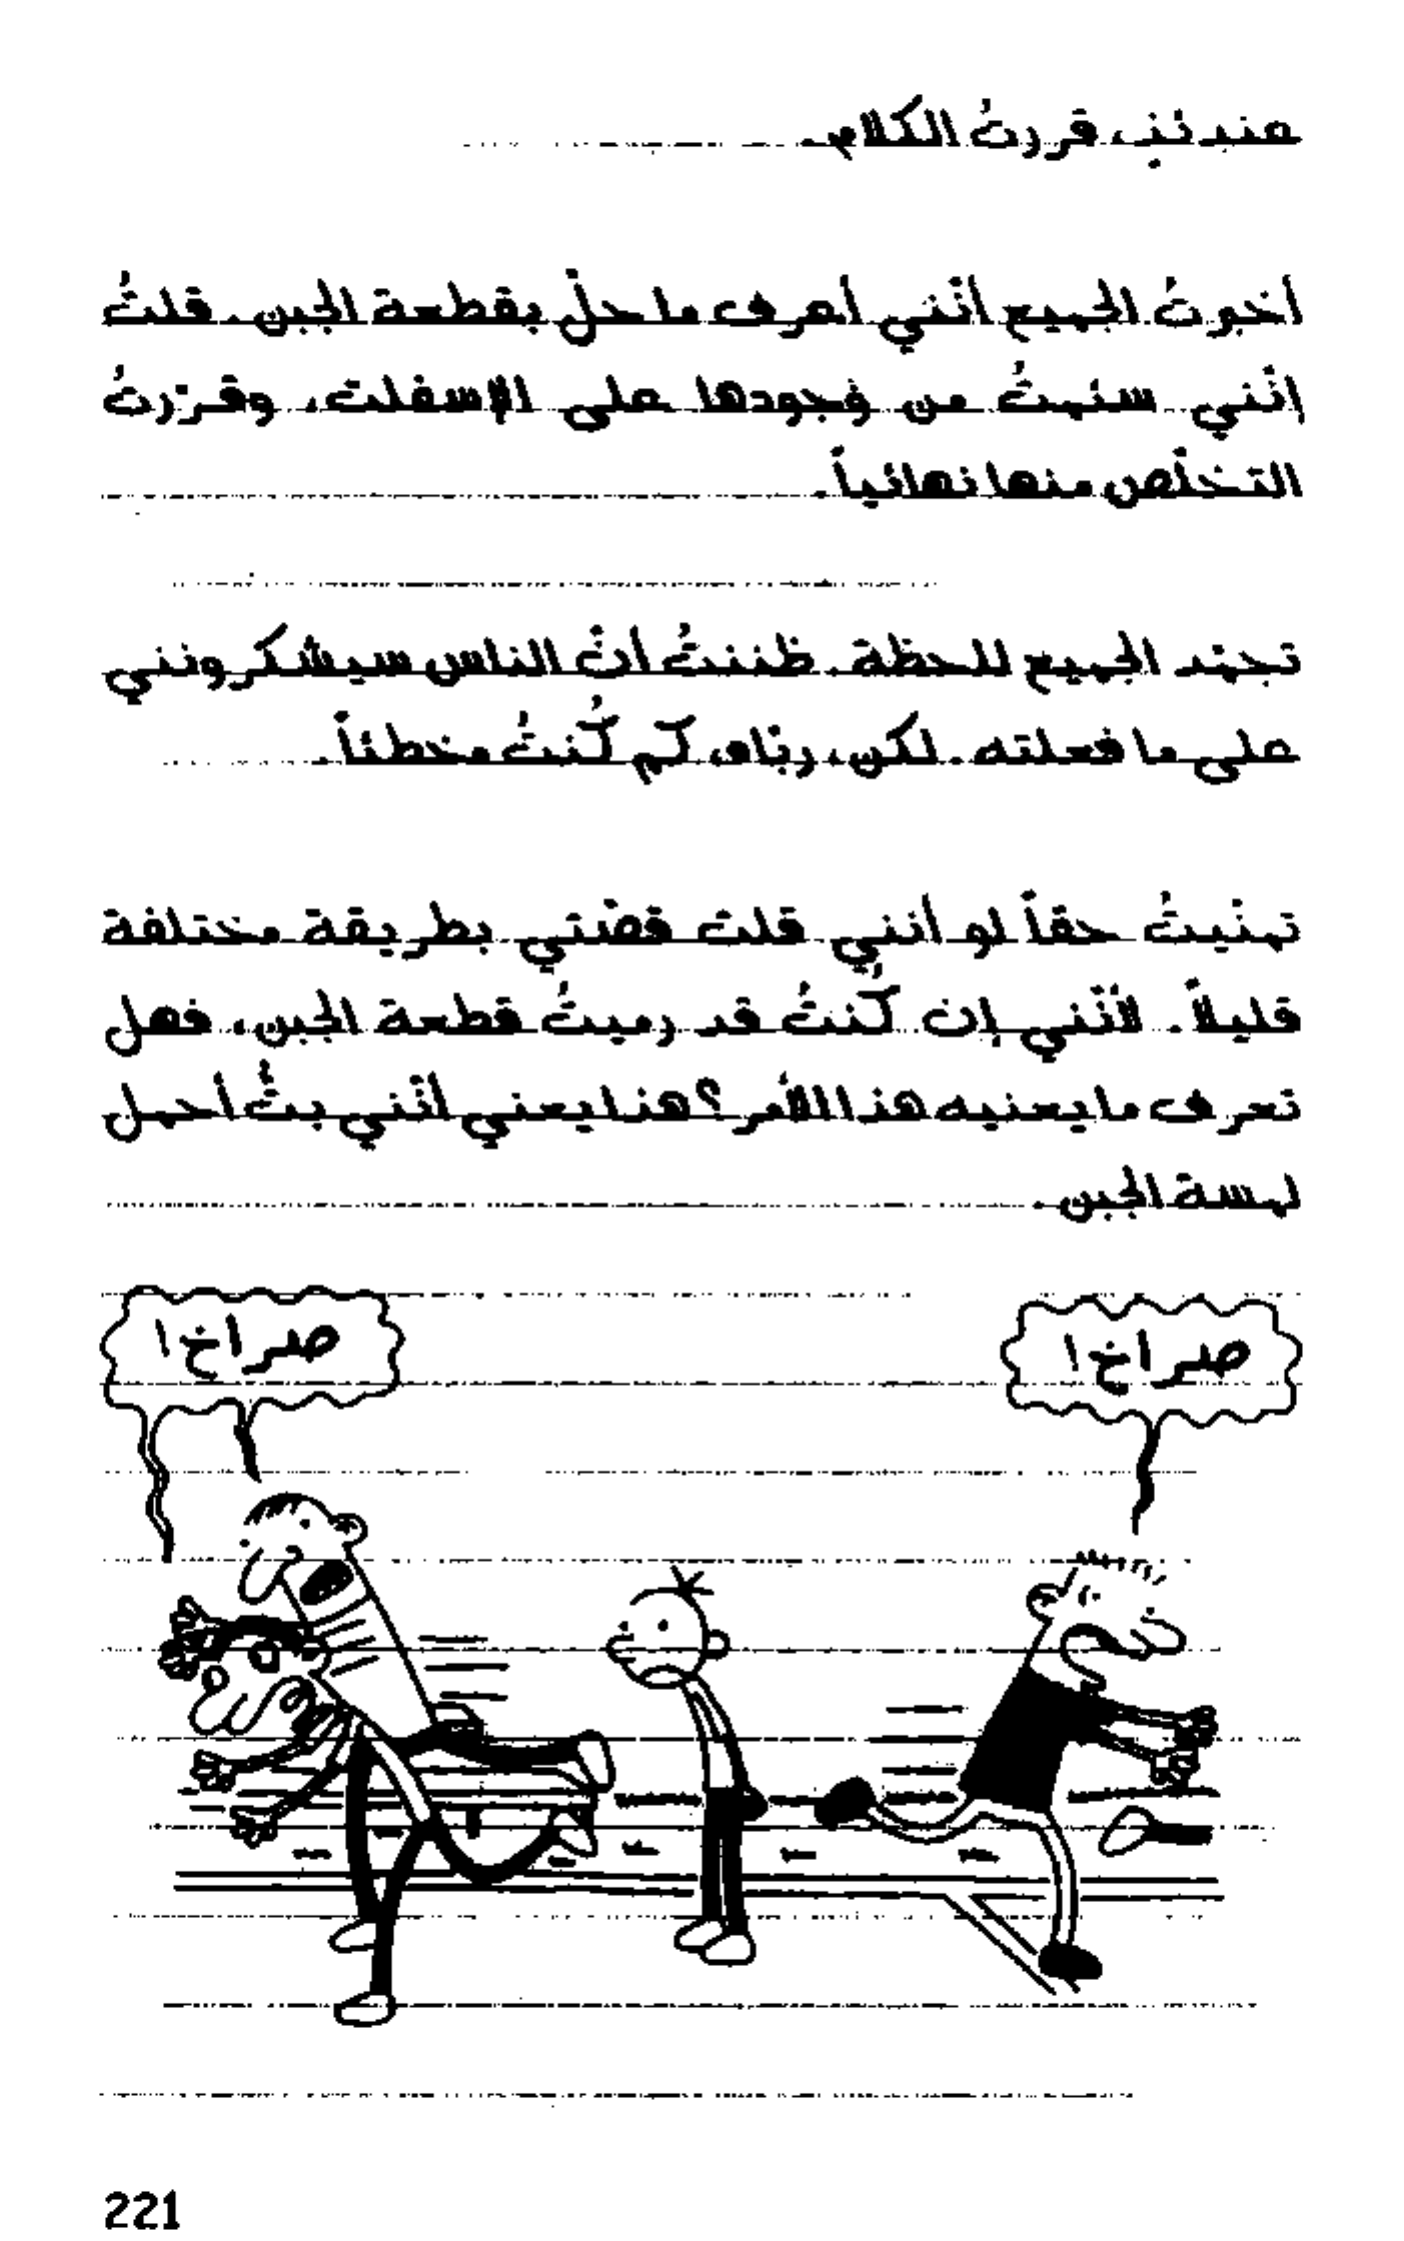 عندئذٍ، قررتُ الكلام.
أخبرتُ الجميع أنّني أعرف ما حلّ بقطعة الجبن. قلتُ
إنّني سئمتُ من وُجودها على الإسفلت، وقرّرتُ
التخلّص منها نهائياً.
تجمّد الجميع للحظة. ظننتُ أنّ الناس سيشكرونني
على ما فعلته. لكن، ربّاه، كم كُنتُ مخطئاً.
تمنّيتُ حقاً لو أنني قلت قصّتي بطريقة مختلفة
قليلاً. لأنّني إن كُنتُ قد رميتُ قطعة الجبن، فهل
تعرف ما يعنيه هذا الأمر؟ هذا يعني أنّني بتُّ أحمل
لمسة الجبن.
صراخ!
صراخ!
221